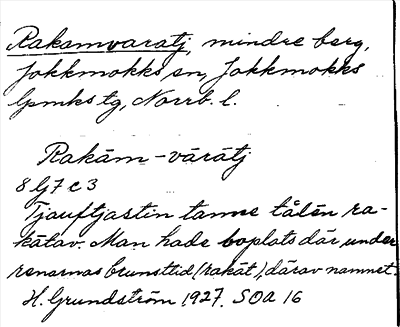 Rakamvaratj, mindre berg,
Jokkmokks sn, Jokkmokks
lpmks tg, Norrb. l.
Rakām-vārātj
8 G 7 c 3
tanne tålēn ra-
kātav. Man hade boplats där under
renarnas brunsttid (rakāt), därav namnet.
H. Grundström 1927. SOA 16